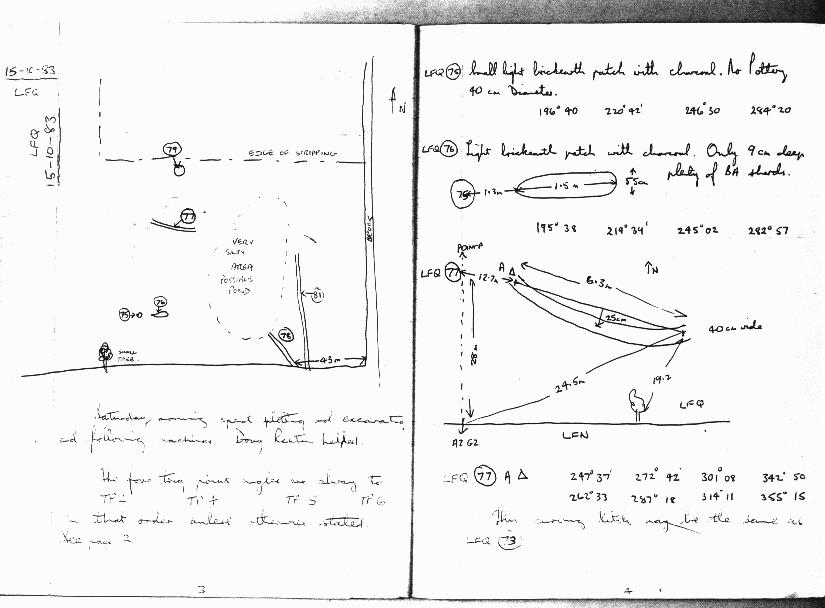 15-10-83
LFQ
LFQ
15-10-83
N
79
EDGE OF STRIPPING
77
VERY
SILTY
AREA
POSSIBLE
POND
81
76
75
78
SMALL
TREE
43m
Saturday, morning spent plotting and excavating
and following machines. Doug helped.
The four Trig point angles are always to
TP2 TP4 TP5 TP6
in that order unless otherwise stated
See page 2
3
LFQ 75 Small light brickearth patch with charcoal. No Pottery
40 cm Diameter.
196° 40 220° 42' 246° 30 284° 20
LFQ 76 Light brickearth patch with charcoal. Only 9 cm deep
plenty of BA sherds.
75 1.3m 1.5m 55cm
195° 38 219° 39' 245° 02 282° 57
POINT A
LFQ 77 12.7m A Δ N
6.3m
25cm
40 cm wide
28m
24.5m 19.2
LFQ
A2 G2 LFN
LFQ 77 A Δ 247° 37' 272° 42' 301° 08 342° 50
262° 33 287° 18 314° 11 355° 15
This curving ditch may be the same as
LFQ 73
4